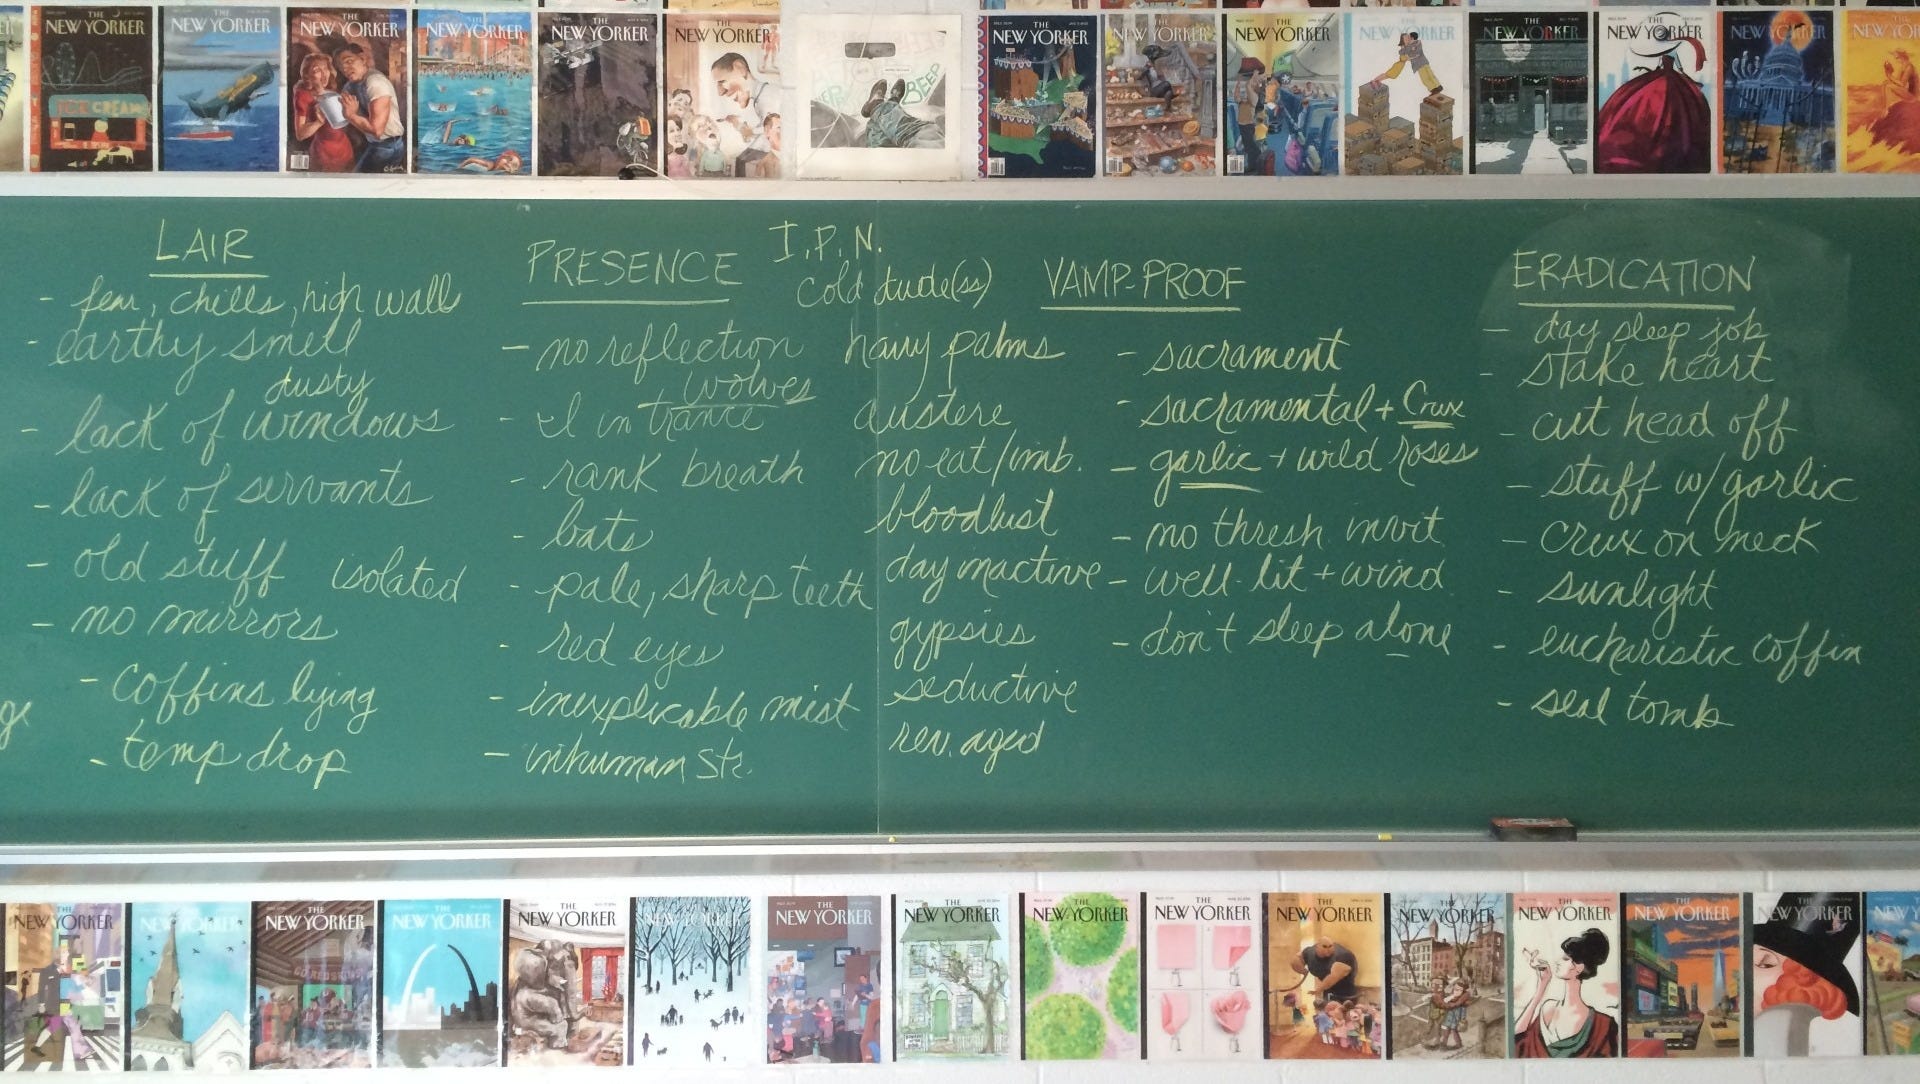 THE NEW YORKER
NEW YORKER
NEW YORKER
NEW YORKER
THE NEW YORKER
THE NEW YORKER
BEEP
THE NEW YORKER
NEW YORKER
THE NEW YORKER
THE NEW YORKER
NEW YORKER
THE NEW YORKER
NEW YORKER
ICE CREAM
LAIR
- fear, chills, high wall
- earthy smell
dusty
- lack of windows
- lack of servants
- old stuff isolated
- no mirrors
- coffins lying
- temp drop
PRESENCE
- no reflection
wolves
- in trance
- rank breath
- bats
- pale, sharp teeth
- red eyes
- inexplicable mist
- inhuman str.
I.P.N.
cold dude(ss)
hairy palms
austere
no eat/imb.
bloodlust
day inactive
gypsies
seductive
rev. aged
VAMP-PROOF
- sacrament
- sacramental + Crux
- garlic + wild roses
- no thresh invit
- well-lit + wind
- don't sleep alone
ERADICATION
- day sleep job
- stake heart
- cut head off
- stuff w/ garlic
- crux on neck
- sunlight
- eucharistic coffin
- seal tomb
NEW YORKER
THE NEW YORKER
GO REDSKINS
THE NEW YORKER
THE NEW YORKER
NEW YORKER
THE NEW YORKER
THE NEW YORKER
THE NEW YORKER
THE NEW YORKER
THE NEW YORKER
THE NEW YORKER
THE NEW YORKER
THE NEW YORKER
THE NEW YORKER